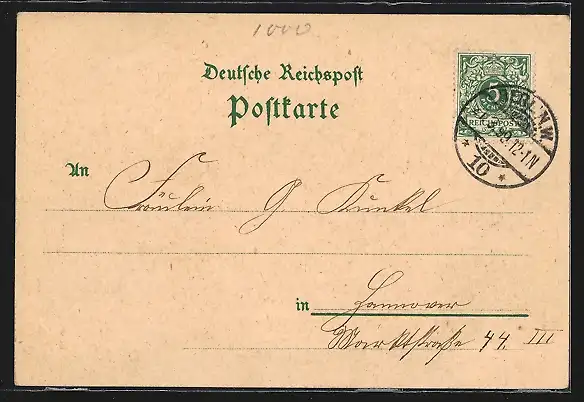 1000
Deutsche Reichspost
Postkarte
5
REICHSPOST
BERLIN, N.W.
12-1N
* 10 *
An Fräulein G Kunkel
in Hannover
Marktstraße 44. III